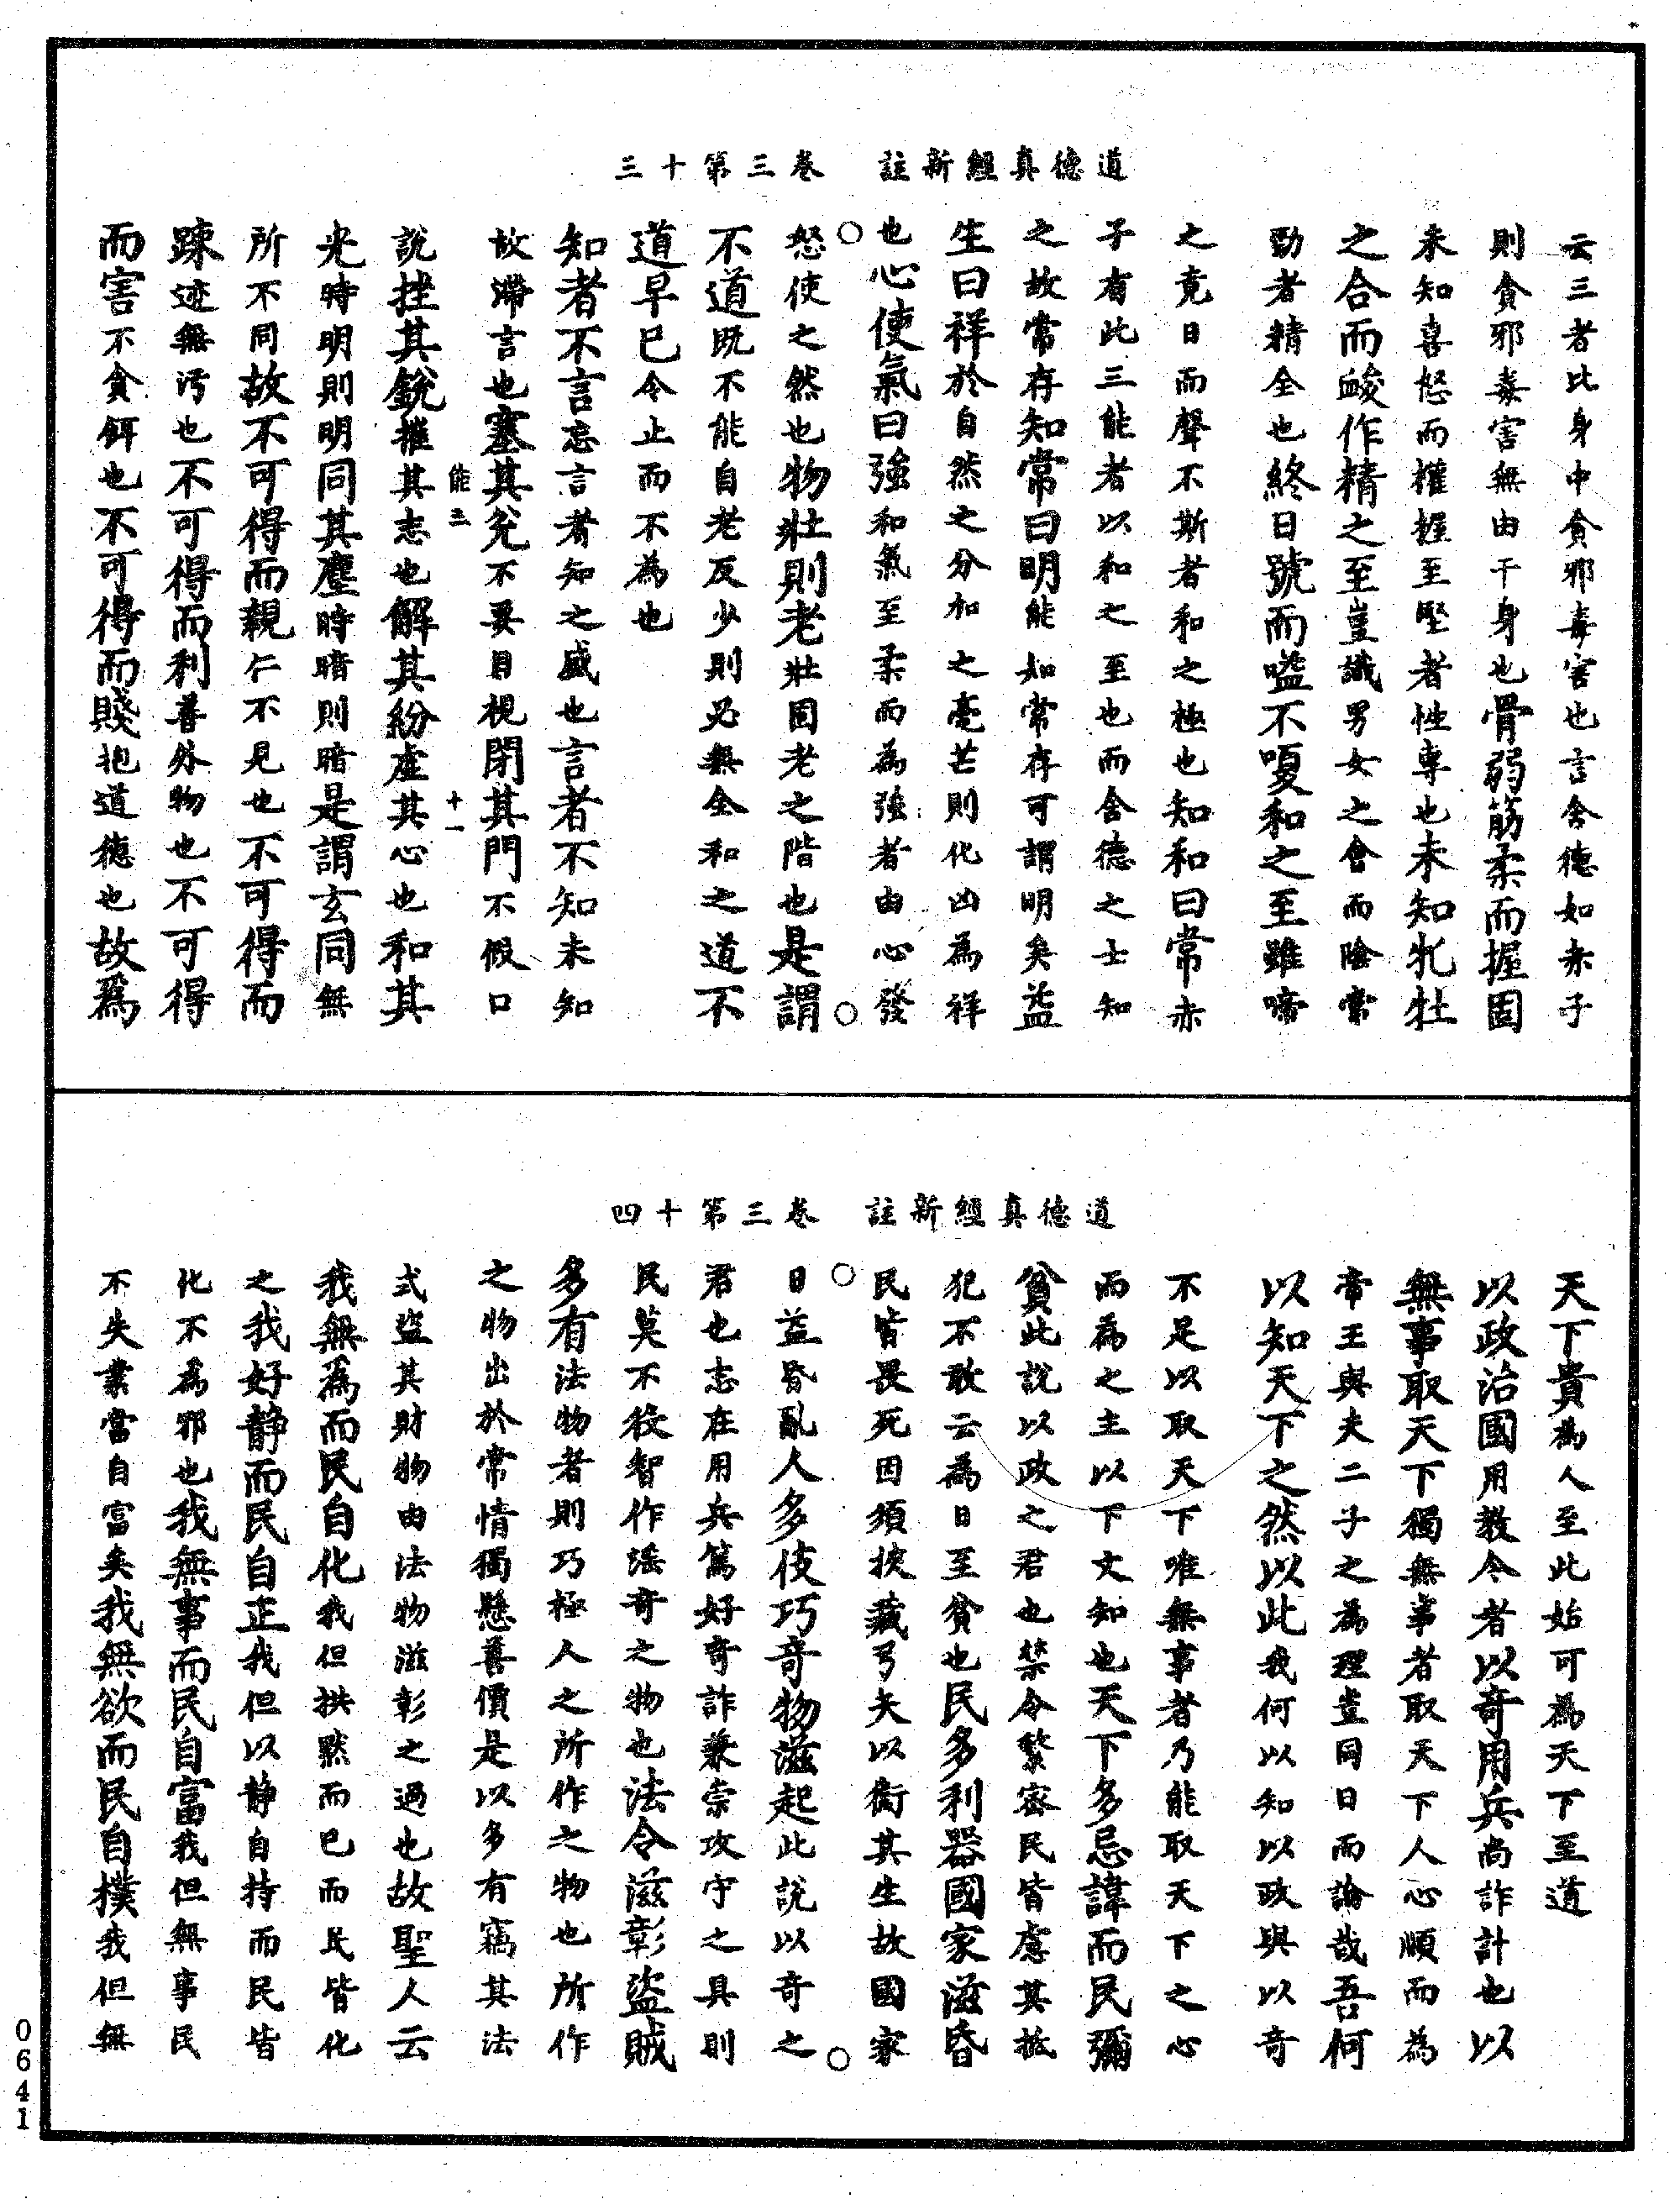 道德真經新註　卷三第十三
云三者比身中貪邪毒害也言含德如赤子
則貪邪毒害無由干身也骨弱筋柔而握固
未知喜怒而權握至堅者性專也未知牝牡
之合而䘒作精之至豈識男女之會而陰常
勁者精全也終日號而嗌不嗄和之至雖啼
之竟日而聲不斯者和之極也知和曰常赤
子有此三能者以和之至也而含德之士知
之故常存知常曰明能知常存可謂明矣益
生曰祥於自然之分加之毫芒則化凶為祥
也心使氣曰強和氣至柔而為強者由心發
怒使之然也物壯則老壯固老之階也是謂
不道既不能自老反少則必無全和之道不
道早已令止而不為也
知者不言忘言者知之盛也言者不知未知
故滯言也塞其兌不妄目視閉其門不假口
能三　十一
說挫其銳摧其志也解其紛虛其心也和其
光時明則明同其塵時暗則暗是謂玄同無
所不同故不可得而親仁不見也不可得而
踈迹無污也不可得而利善外物也不可得
而害不貪餌也不可得而賤抱道德也故爲
道德真經新註　卷三第十四
天下貴為人至此始可為天下至道
以政治國用教令者以奇用兵尚詐計也以
無事取天下獨無事者取天下人心順而為
帝王與夫二子之為理豈同日而論哉吾何
以知天下之然以此我何以知以政與以奇
不足以取天下唯無事者乃能取天下之心
而為之主以下文知也天下多忌諱而民彌
貧此說以政之君也禁令繁密民皆慮其抵
犯不敢云為日至貧也民多利器國家滋昏
民皆畏死因須挾藏弓矢以衛其生故國家
日益昏亂人多伎巧奇物滋起此說以奇之
君也志在用兵篤好奇詐兼崇攻守之具則
民莫不役智作謠奇之物也法令滋彰盜賊
多有法物者則巧極人之所作之物也所作
之物出於常情獨懸善價是以多有竊其法
式盜其財物由法物滋彰之過也故聖人云
我無爲而民自化我但拱默而已而民皆化
之我好靜而民自正我但以靜自持而民皆
化不為邪也我無事而民自富我但無事民
不失業當自富矣我無欲而民自樸我但無
0641